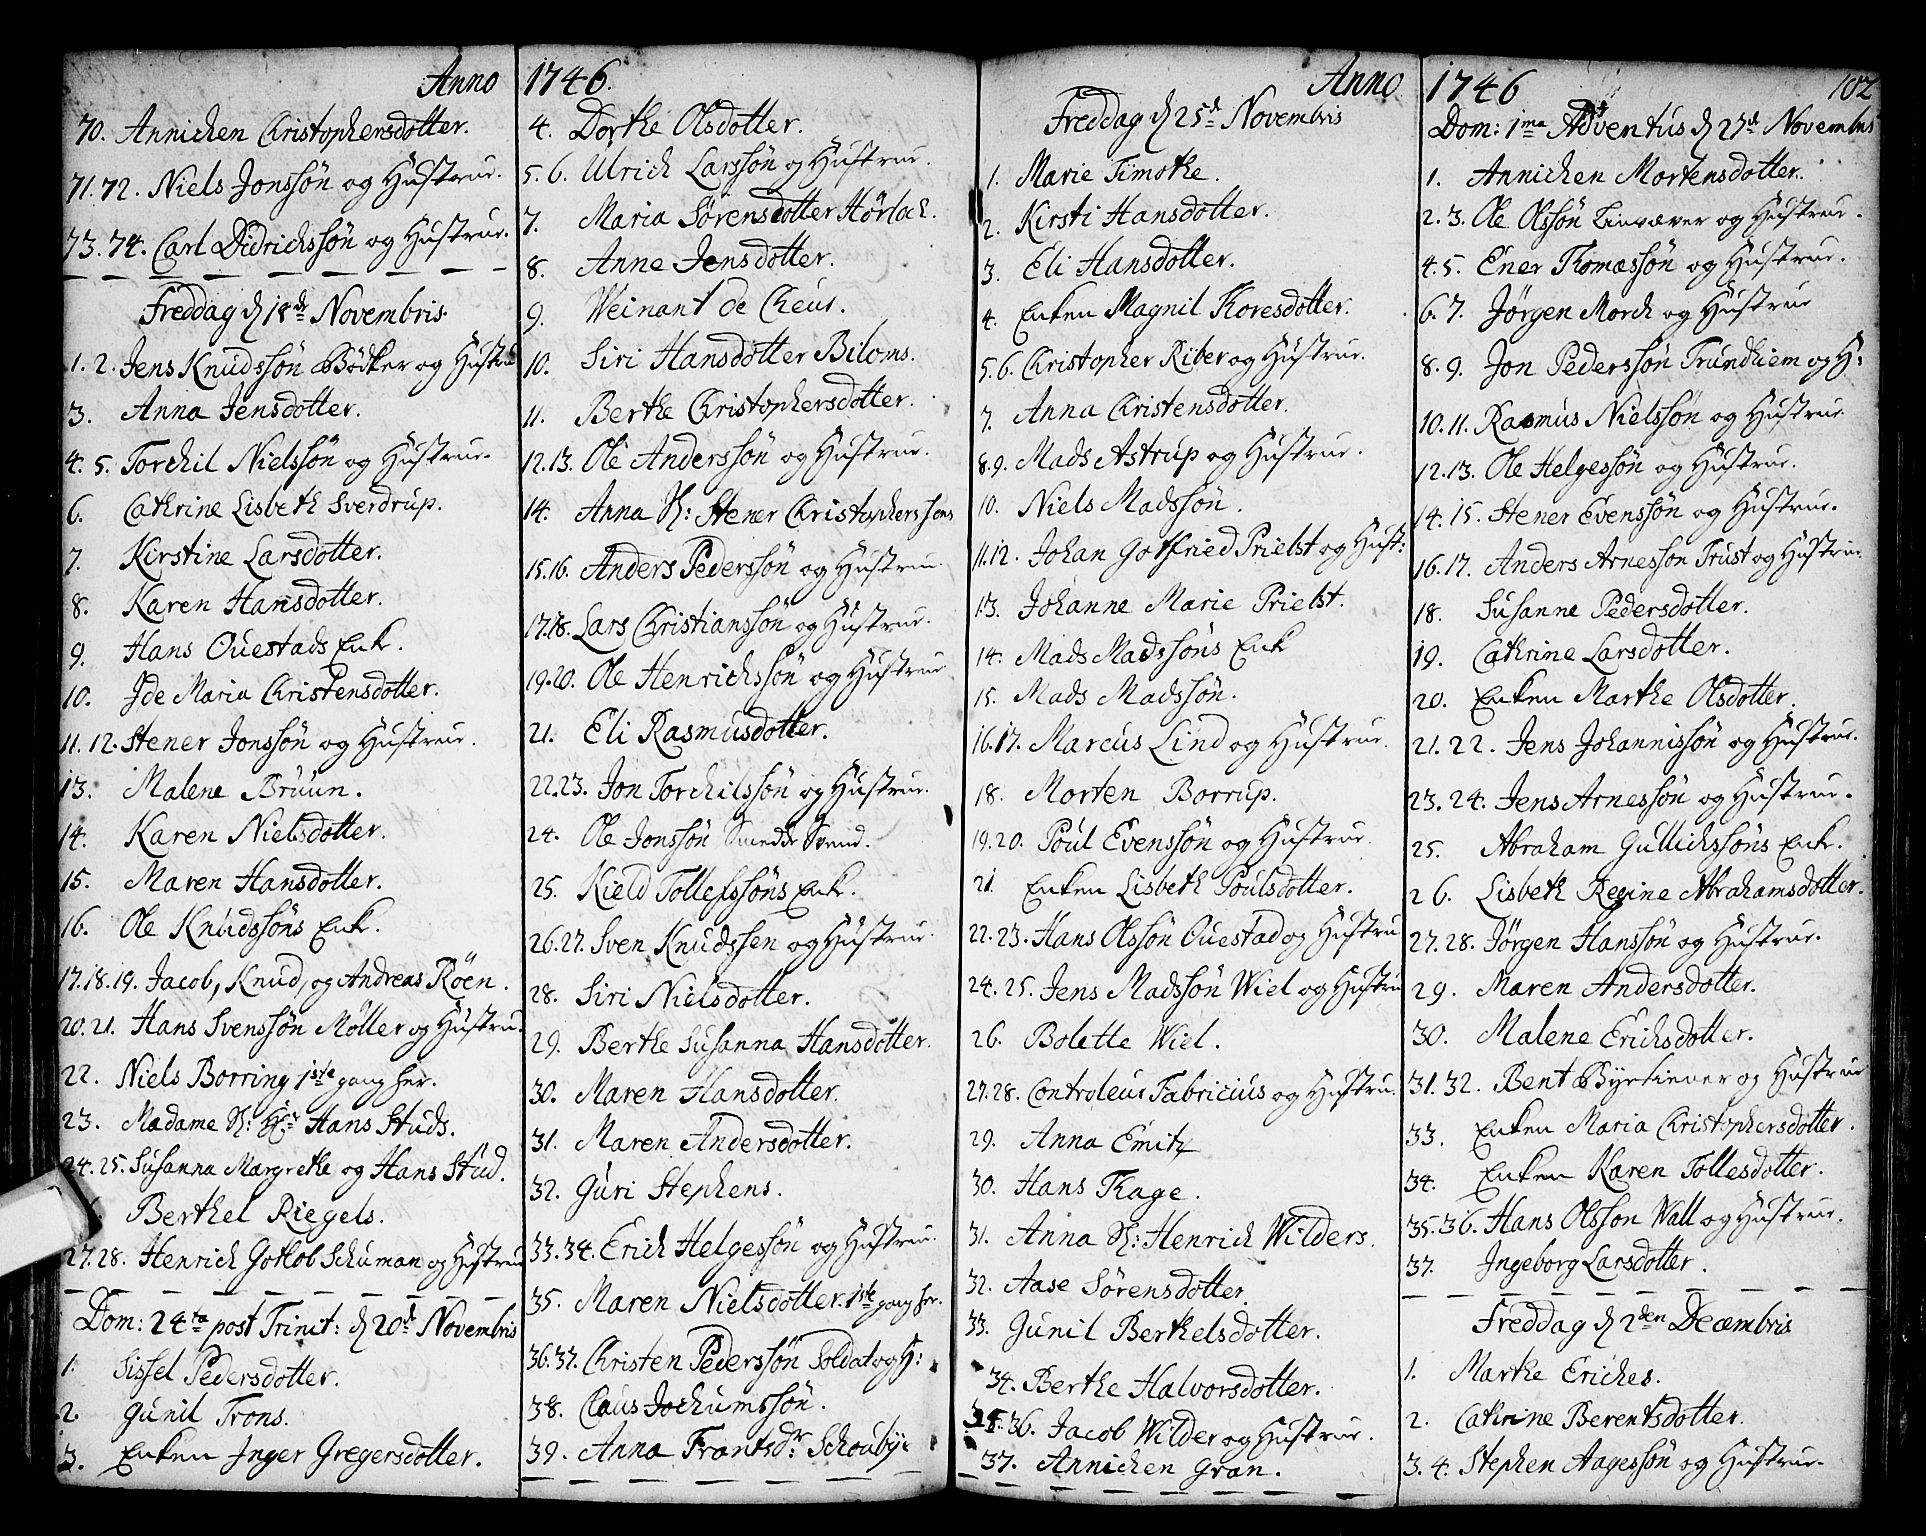 Anno
70. Annichen Christophersdotter.
71. 72. Niels Jonssön og Hustrue.
73. 74. Carl Didrichssön og Hustrue.
Freddag d 18de Novembris.
1. 2. Jens Knudssön Bödker og Hustru
3. Anna Jensdotter.
4. 5. Torchil Nielssön og Hustrue.
6. Cathrine Lisbeth Sverdrup.
7. Kirstine Larsdotter.
8. Karen Hansdotter.
9. Hans Ouestads Enk.
10. Ide Maria Christensdotter.
11. 12. Stener Jonssön og Hustrue.
13. Malene Bruun.
14. Karen Nielsdotter.
15. Maren Hansdotter.
16. Ole Knudssöns Enk.
17. 18. 19. Jacob, Knud, og Andreas Röen.
20. 21. Hans Svenssön Möller og Hustru.
22. Niels Borring 1ste gang her.
23. Madame Sl: Hans Studs.
24. 25. Susanna Margrethe og Hans Stud.
Berthel Riegels.
27. 28. Henrich Gotlob Schuman og Hustrue
Dom: 24ta post Trinit: d 20de Novembris
1. Sissel Pedersdotter.
2. Gunil Trons.
3. Enken Inger Gregersdotter.
1746.
4. Dorthe Olsdotter.
5. 6. Ulrich Larssön og Hustrue.
7. Maria Sörensdotter Hörlock.
8. Anne Jensdotter.
9. Weinant de Cheur.
10. Siri Hansdotter Biloms.
11. Berthe Christophersdotter.
12. 13. Ole Anderssön og Hustrue.
14. Anna Sl: Stener Christopherssöns
15. 16. Anders Pederssön og Hustrue.
17. 18. Lars Christianssön og Hustrue.
19. 20. Ole Henrichssön og Hustrue
21. Eli Rasmusdotter.
22. 23. Jon Torchilssön og Hustrue.
24. Ole Jonssön Smedde Svend.
25. Kield Tollefssöns Enk.
26. 27. Sven Knudssen og Hustrue.
28. Siri Nielsdotter.
29. Berthe Susanna Hansdotter.
30. Maren Hansdotter.
31. Maren Andersdotter.
32. Guri Stephens.
33. 34. Erich Helgessön og Hustrue.
35. Maren Nielsdotter. 1ste gang her.
36. 37. Christen Pederssön Soldat og H:
38. Claus Jochumssön.
39. Anna Frantsdr Schouby
Anno
Freddag d 25de Novembris
1. Marie Timothe.
2. Kirsti Hansdotter.
3. Eli Hansdotter.
4. Enken Magnil Thoresdotter.
5. 6. Christopher Riber og Hustrue.
7. Anna Christensdotter.
8. 9. Mads Astrup og Hustrue.
10. Niels Madssön.
11. 12. Johan Gotfried Prielst og Hust:
13. Johanne Marie Prielst.
14. Mads Madssöns Enk
15. Mads Madssön.
16. 17. Marcus Lind og Hustrue.
18. Morten Borrup.
19. 20. Poul Evenssön og Hustrue.
21. Enken Lisbeth Poulsdotter.
22. 23. Hans Olssön Ouestad og Hustru
24. 25. Jens Madssön Wiel og Hustru
26. Bolette Wiel.
27. 28. Controleur Fabricius og Hustru.
29. Anna Emitz
30. Hans Thage.
31. Anna Sl: Henrich Wilders.
32. Aase Sörensdotter.
33. Gunil Berthelsdotter.
34. Berthe Halvorsdotter.
35. 36. Jacob Wilder og Hustrue.
37. Annichen Gran.
1746
102
Dom: 1ma Adventus d 27de Novembris
1. Annichen Mortensdotter.
2. 3. Ole Olssön Linvæver og Hustrue.
4. 5. Ener Thomassön og Hustrue.
6. 7. Jörgen Morch og Hustrue
8. 9. Jon Pederssön Trundhiem og H:
10. 11. Rasmus Nielssön og Hustrue
12. 13. Ole Helgessön og Hustrue.
14. 15. Stener Evenssön og Hustrue.
16. 17. Anders Arnesson Trust og Hustrue.
18. Susanne Pedersdotter.
19. Cathrine Larsdotter.
20. Enken Marthe Olsdotter.
21. 22. Jens Johannissön og Hustrue.
23. 24. Jens Arnessön og Hustrue.
25. Abraham Gullichssöns Enk.
26. Lisbeth Regine Abrahamsdotter.
27. 28. Jörgen Hanssön og Hustrue.
29. Maren Andersdotter.
30. Malene Erichsdotter.
31. 32. Bent Byetiener og Hustrue
33. Enken Maria Christophersdotter.
34. Enken Karen Tollesdotter.
35. 36. Hans Olsson Wall og Hustrue.
37. Ingeborg Larsdotter.
Freddag d 2den Decembris
1. Marthe Eriches.
2. Cathrine Berentsdotter.
3. 4. Stephen Aagessön og Hustrue.